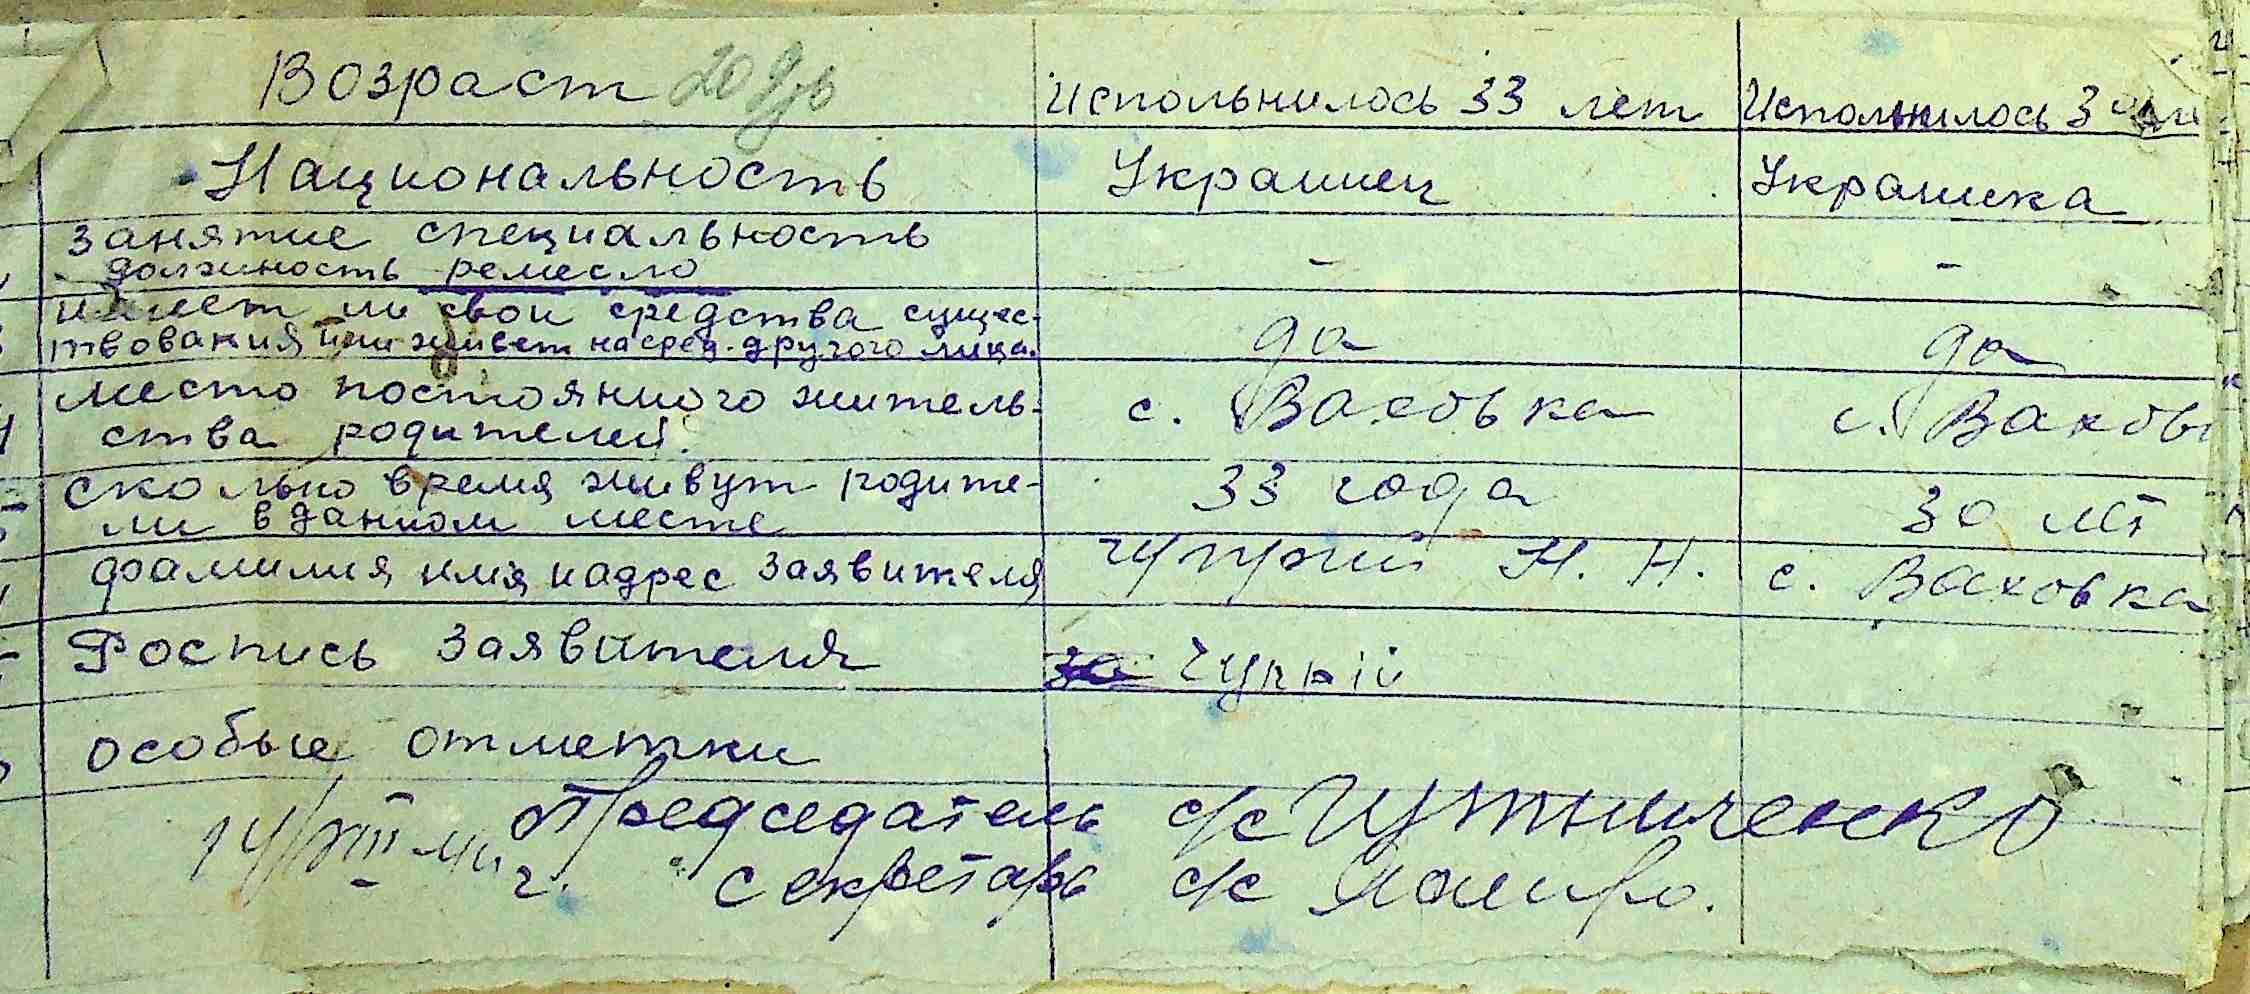 Возраст Испольнилось 33 лет Испольнилось 30
Национальность Украинец Украинка
Занятие специальность
должность ремесло - -
имеет ли свои средства сущес-
твования или живет на сред. другого лица. да да
место постоянного житель- с. Ваховка с. Вахов
ства родителей.
сколько время живут родите- 33 года 30 лет
ли в данном месте
фамилия имя и адрес заявителя Чуприй Н. Н. с. Ваховка
Роспись заявителя за Чупрій
особые отметки
Председатель с/с
г. секретарь с/с